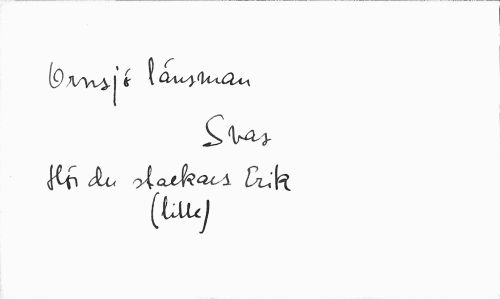 Ornsjö länsman
Svas
Hör du stackars Erik
(lille)